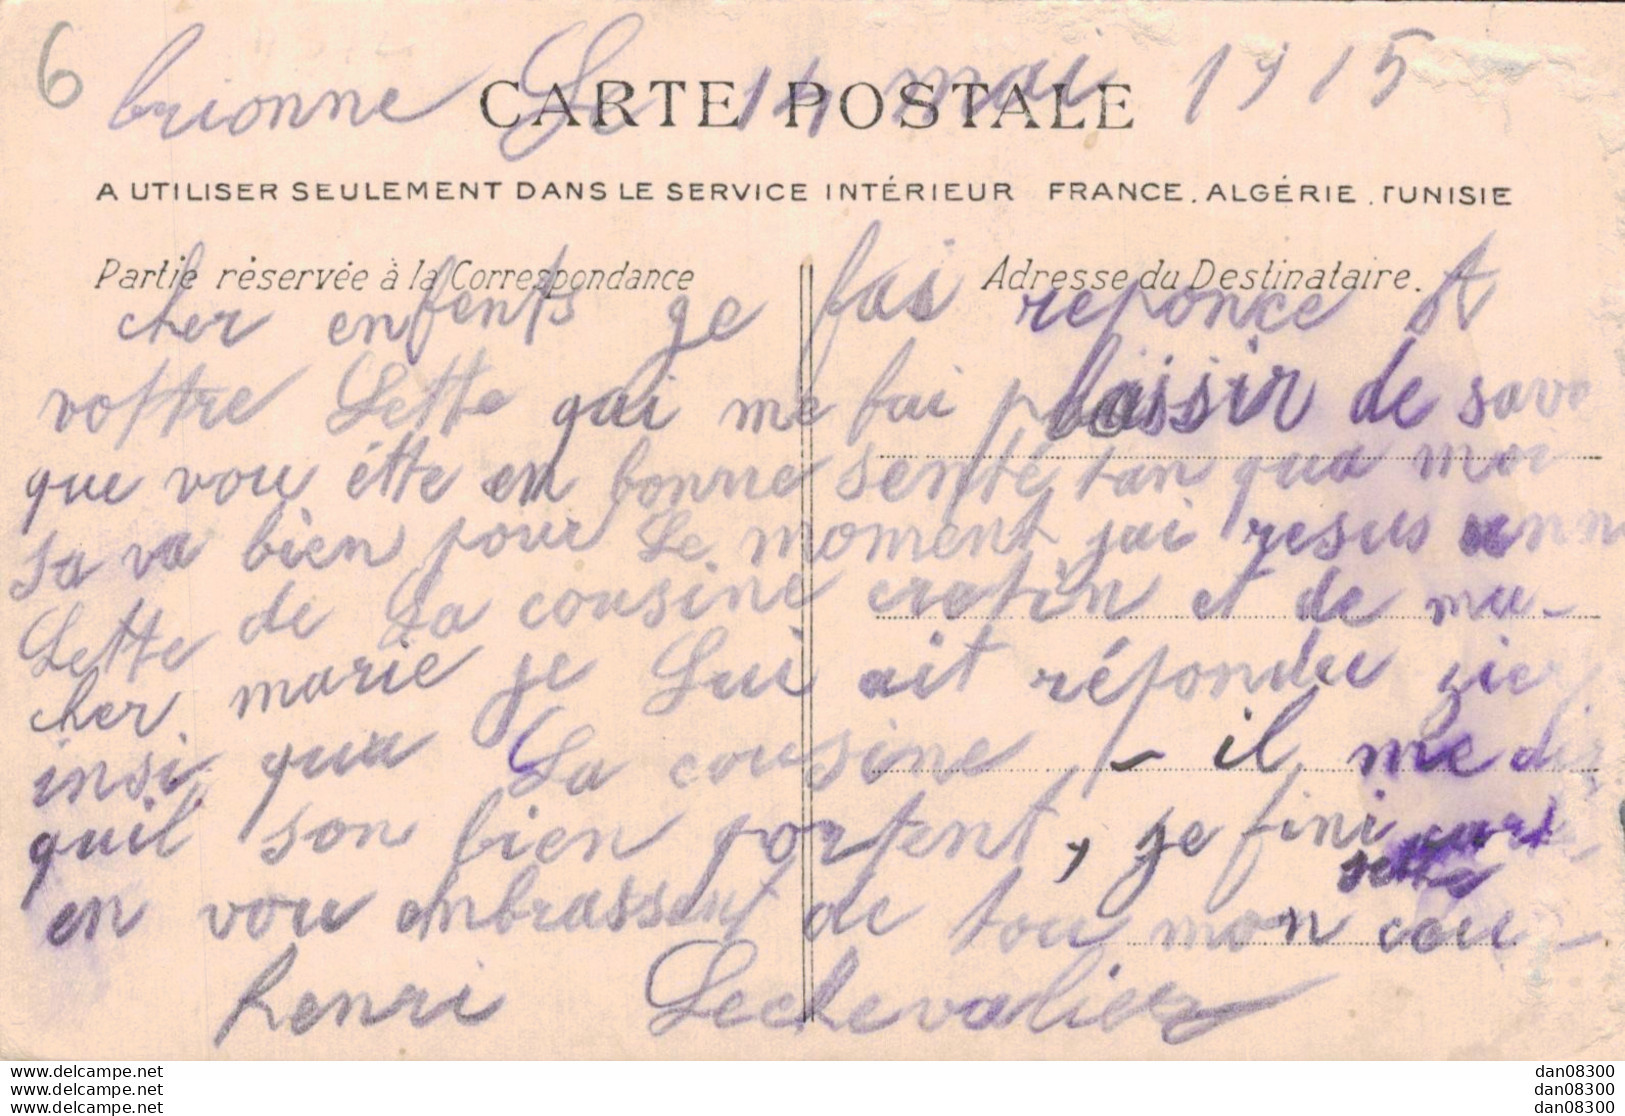 6
brionne Le 14 mai 1915
CARTE POSTALE
A UTILISER SEULEMENT DANS LE SERVICE INTÉRIEUR FRANCE. ALGÉRIE. TUNISIE
Partie réservée à la Correspondance
Adresse du Destinataire.
cher enfents ge fais reponce A
vottre Lette qui me fai plaissir de savo
que vou étte en bonne senté tan qua moi
sa va bien pour Le moment jai resus unne
Lette de La cousine cratin et de mu-
cher marie je Lui ait répondu gier
insi qua La cousine - il me dis
quil son bien portent, ge fini carte
sette
en vou enbrassent de tou mon cou-
henri Lechevalier
www.delcampe.net
www.delcampe.net
www.delcampe.net
dan08300
dan08300
dan08300